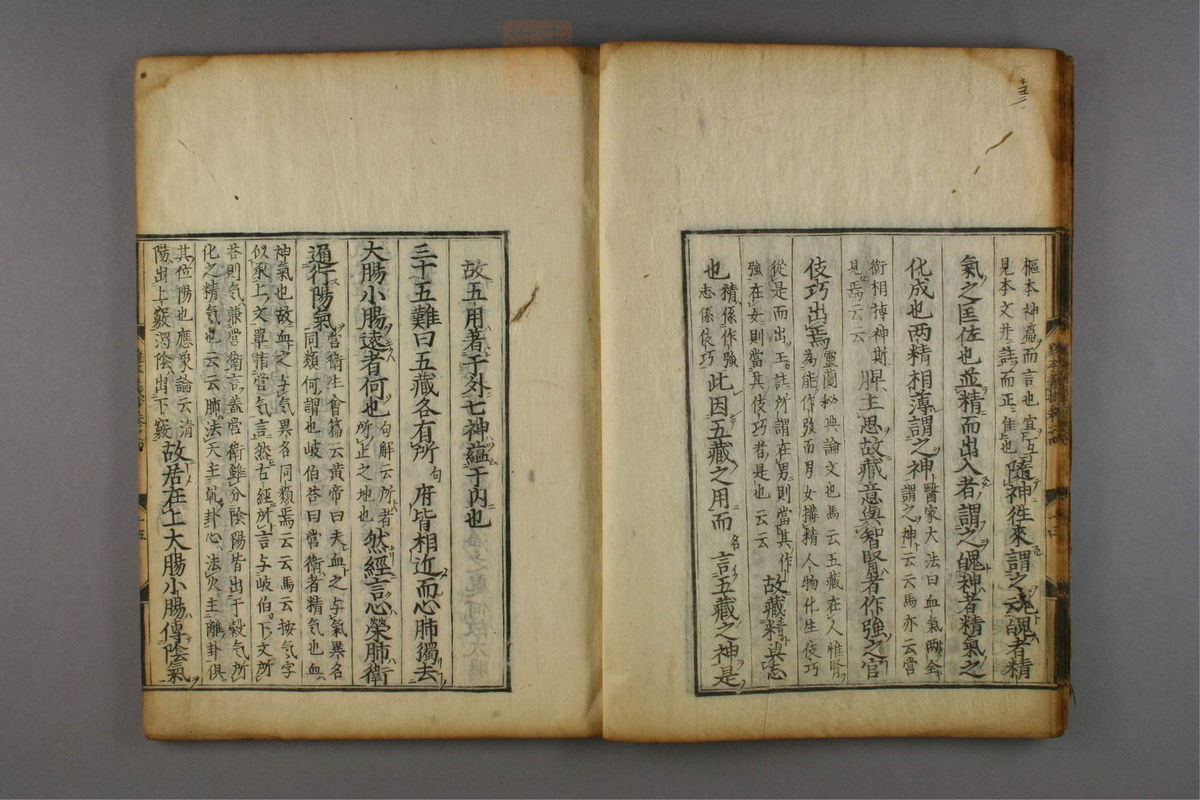 樞本神篇而言也宜互隨神徃來謂之云䰟者精
見本文并註而正焦也
氣之匡佐也並精而出入者謂之魄神者精氣之
化成也两精相薄謂之神醫家大法曰血氣兩全
謂之神云云馬亦云營
衛相摶神斯脾主思故藏意與智腎者作強之官
見焉云云
伎巧出焉靈蘭秘典論文也馬云五藏在人雅腎
為能作強而男女搆精人物化生伎巧
從是而出王註所謂在男則當其作故藏精與志
強在女則當其伎巧者是也云云
也精係作強此因五藏之用而名言五藏之神是
志係伎巧
故五用著于外七神蘊于內也
三十五難曰五藏各有所句府皆相近而心肺獨去
大腸小腸遠者何也句解云所者然經言心榮肺衛
所止之地也
通行陽氣營衛生會篇云黄帝曰夫血之与氣異名
同類何謂也岐伯答曰營衛者精気也血
神氣也故血之与気異名同類焉云云馬云按気字
似乘上文單指営気言然古經所言与岐伯下文所
答則気兼営衛言蓋営衛雖分陰陽皆出于穀気所
化之精気也云云肺法天主乾卦心法火主離卦俱
其位陽也應象論云清故居在上大腸小腸傳陰氣
陽出上竅濁陰出下竅